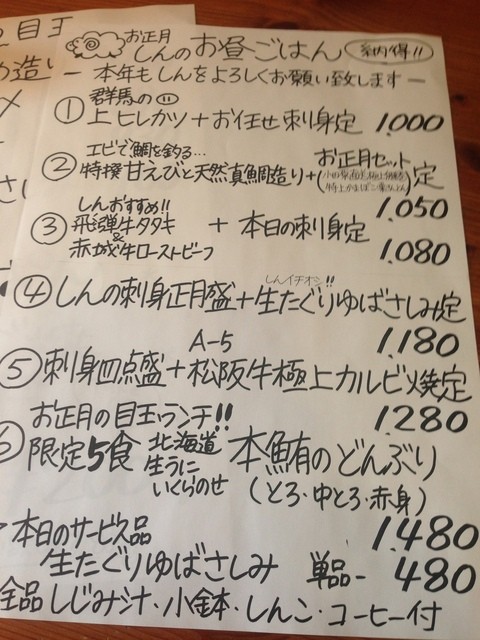 お正月
しんのお昼ごはん 納得!!
ー 本年もしんをよろしくお願い致します ー
群馬の
① 上ヒレカツ + お任せ刺身定 1,000
エビで鯛を釣る…
② 特撰 甘えびと天然真鯛造り + お正月セット 定
1,050
しんおすすめ!!
③ 飛騨牛タタキ & 赤城牛ローストビーフ + 本日の刺身定
1,080
しんイチオシ!!
④ しんの刺身正月盛 + 生たぐりゆばさしみ定
1,180
A-5
⑤ 刺身四点盛 + 松阪牛極上カルビ焼定
1,280
お正月の目玉ランチ!!
⑥ 限定5食 北海道 生うに いくらのせ 本鮪のどんぶり
(とろ・中とろ・赤身)
1,480
本日のサービス品
生たぐりゆばさしみ 単品- 480
全品 しじみ汁・小鉢・しんこ・コーヒー付